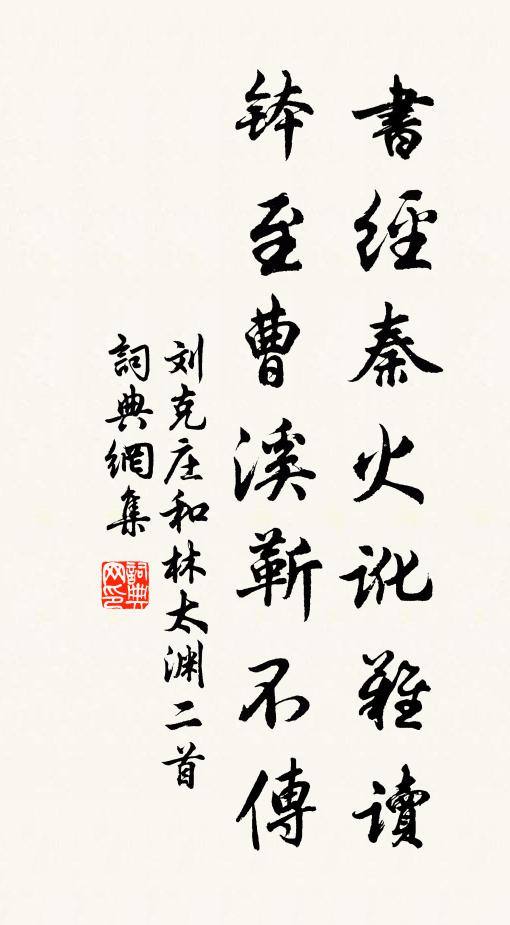 書經秦火訛難讀
鉢至曹溪靳不傳
刘克庄和林太渊二首
詞典網集
詞典网印